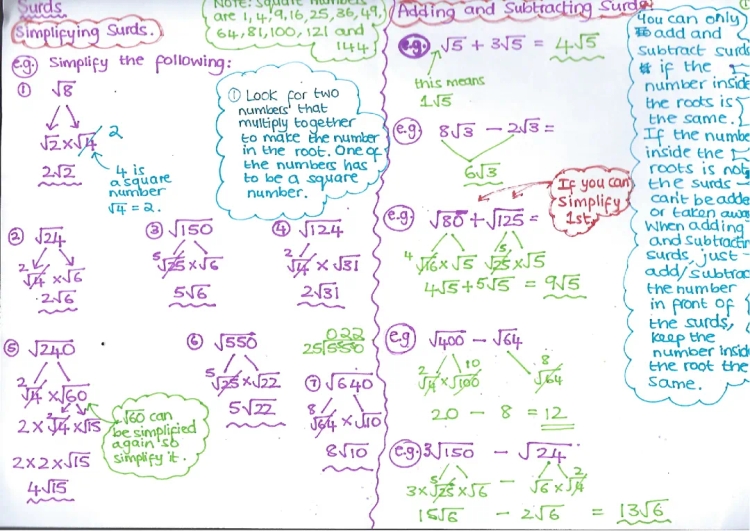 Surds
Simplifying Surds.
Note: Square numbers
are 1, 4, 9, 16, 25, 36, 49,
64, 81, 100, 121 and
144
e.g. Simplify the following:
① √8
√2 × √4 2
2√2
4 is
a square
number
√4 = 2.
① Look for two
numbers that
multiply together
to make the number
in the root. One of
the numbers has
to be a square
number.
② √24
2
√4 × √6
2√6
③ √150
5
√25 × √6
5√6
④ √124
2
√4 × √31
2√31
⑤ √240
2
√4 × √60
2 × √4 × √15
2
2 × 2 × √15
4√15
√60 can
be simplified
again so
simplify it.
⑥ √550
5
√25 × √22
5√22
022
25√550
⑦ √640
8
√64 × √10
8√10
Adding and Subtracting Surds
e.g. √5 + 3√5 = 4√5
this means
1√5
e.g. 8√3 − 2√3 =
6√3
If you can
simplify
1st.
e.g. √80 + √125 =
4 √16 × √5 5 √25 × √5
4√5 + 5√5 = 9√5
e.g. √400 − √64
2 10 8
√4 × √100 √64
20 − 8 = 12
e.g. 3√150 − √24
5 2
3 × √25 × √6 − √6 × √4
15√6 − 2√6 = 13√6
You can only
add and
subtract surds
if the
number inside
the roots is
the same.
If the number
inside the
roots is not
the surds
can't be added
or taken away
When adding
and subtracting
surds, just
add/subtract
the number
in front of
the surds,
keep the
number inside
the root the
same.